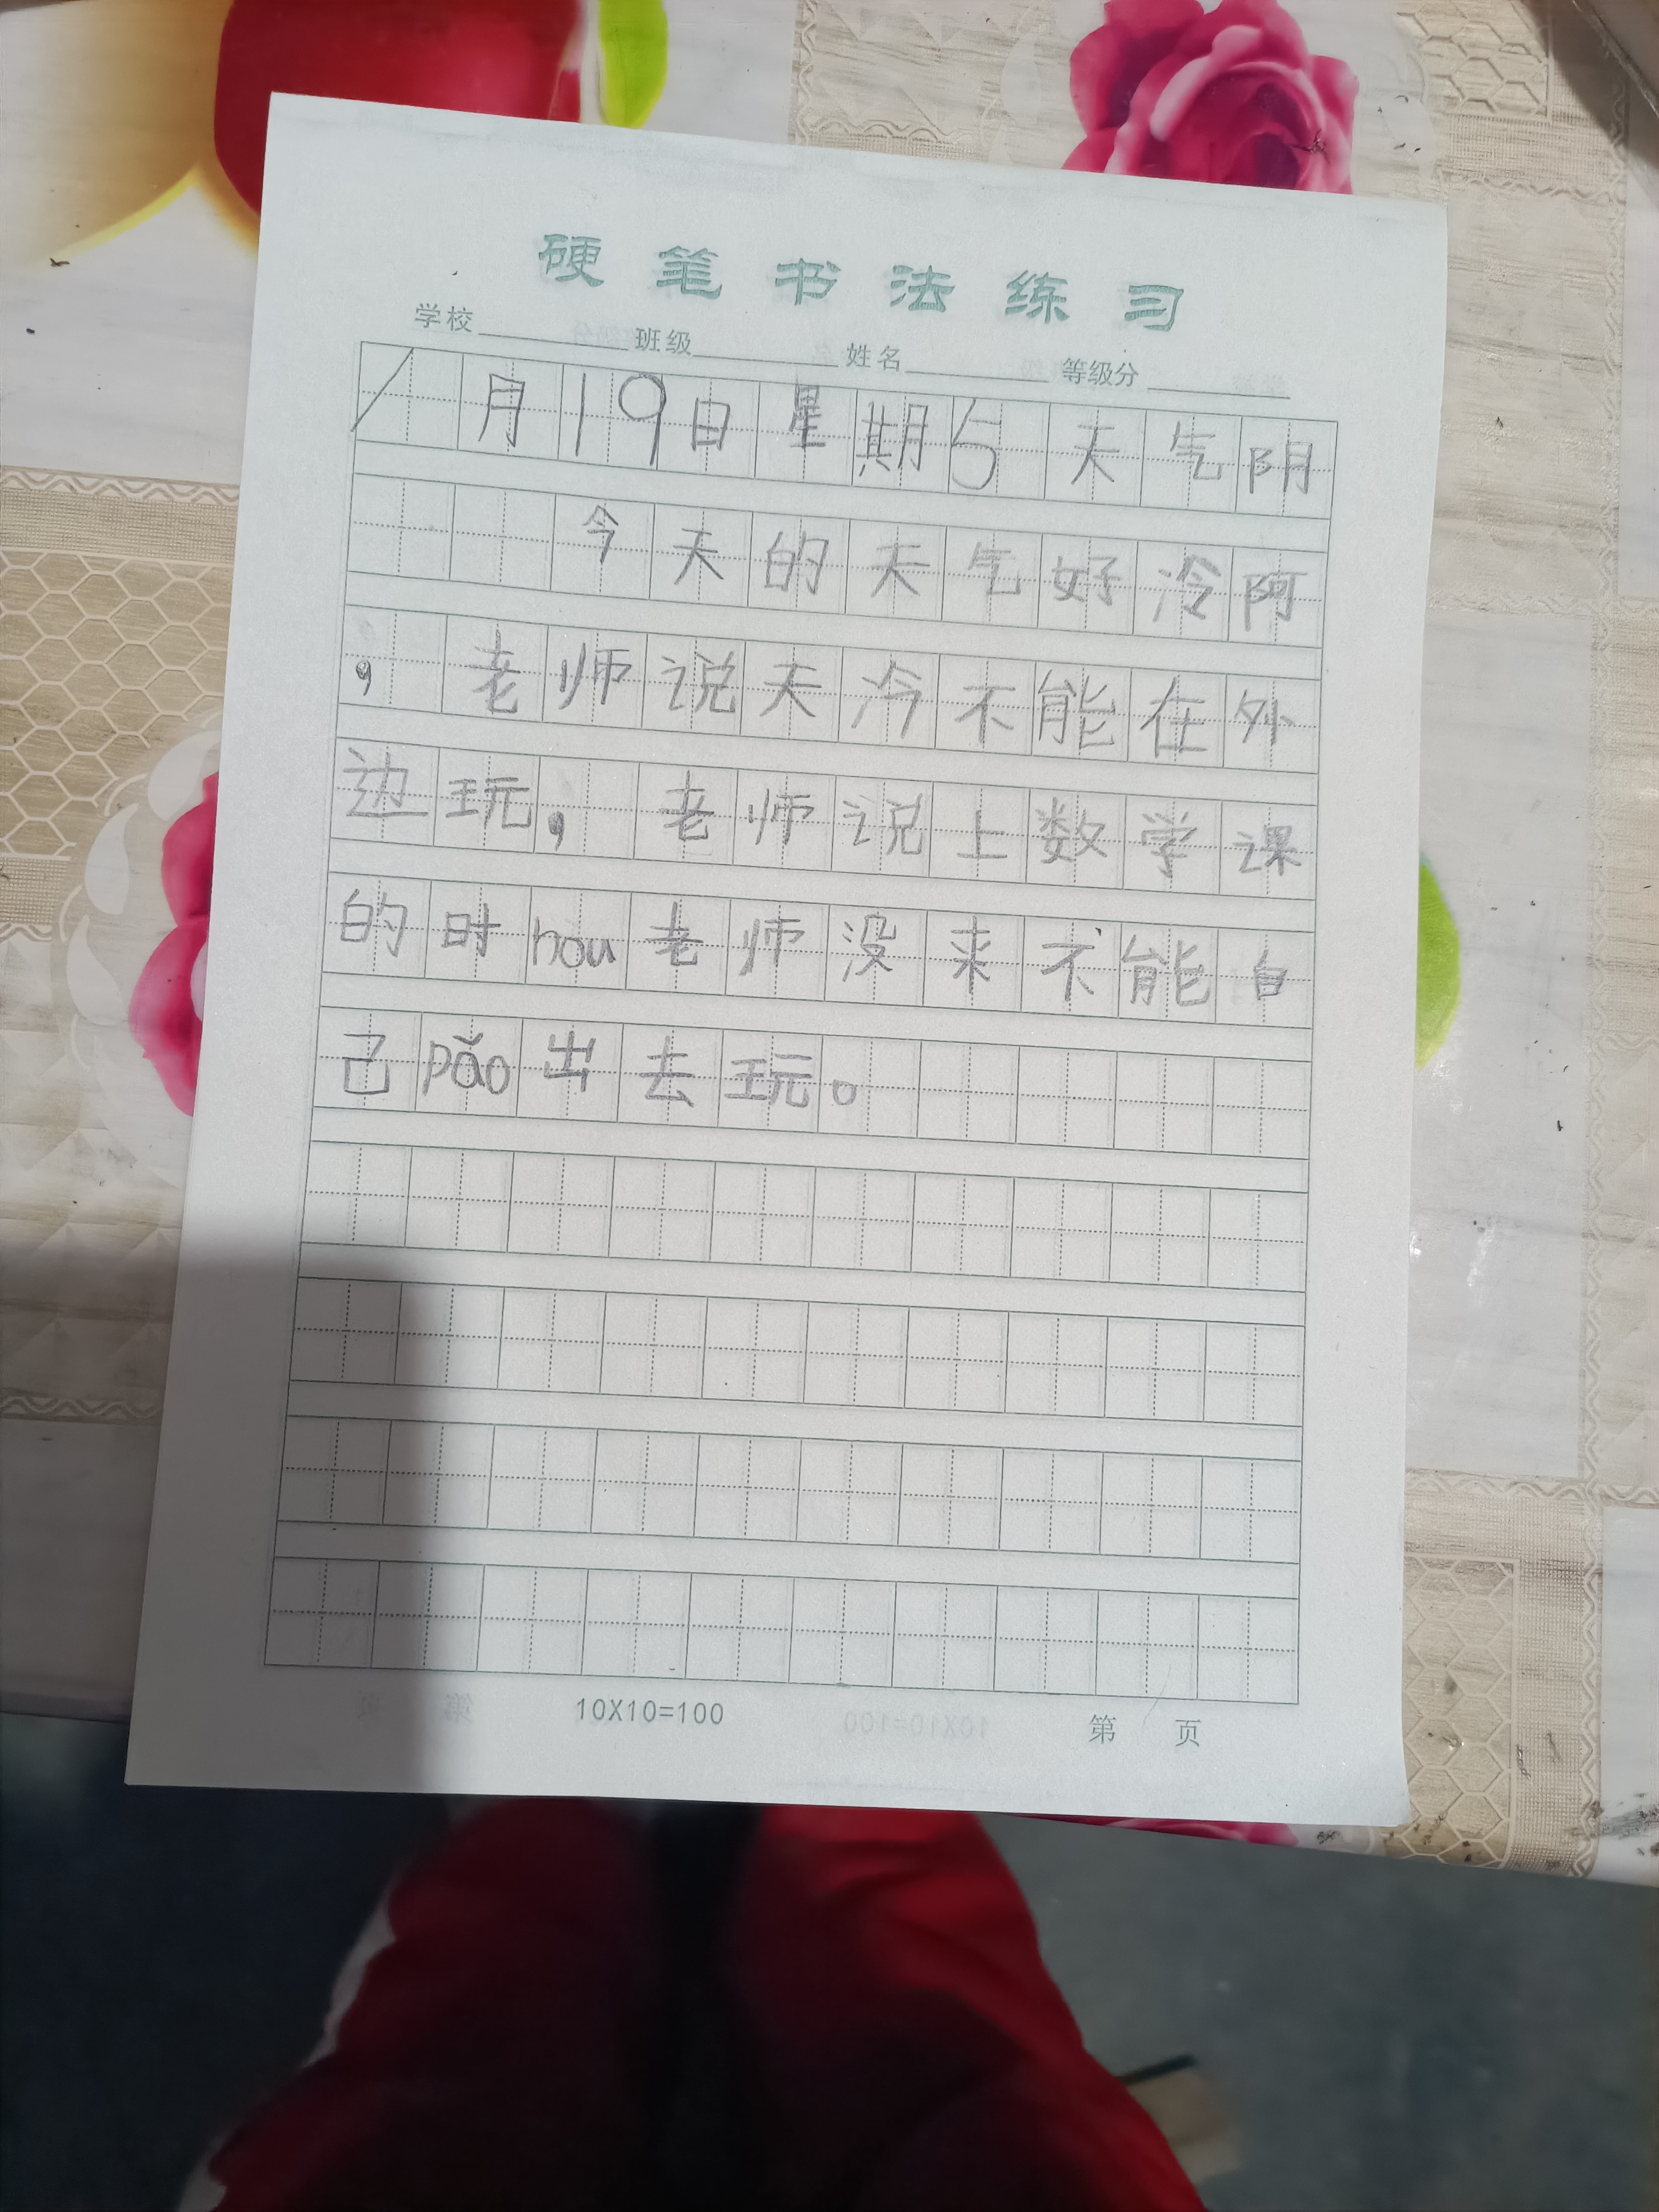 硬笔书法练习
学校 班级 姓名 等级分
1月19日星期5天气阴
今天的天气好冷阿
，老师说天冷不能在外
边玩，老师说上数学课
的时hou老师没来不能自
己pǎo出去玩。
10X10=100 第 页